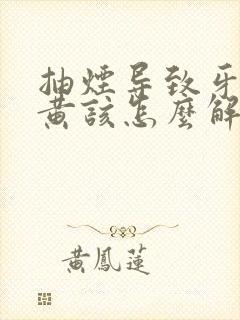 抽煙导致牙
黄該怎麼解
黃鳳蓮